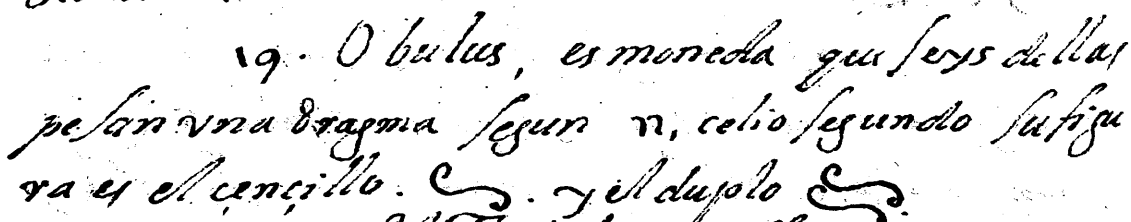 19. Obulus, es moneda que seys dellas
pesan vna dragma segun n, celio segundo su figu
ra es el çençillo. . y el duplo